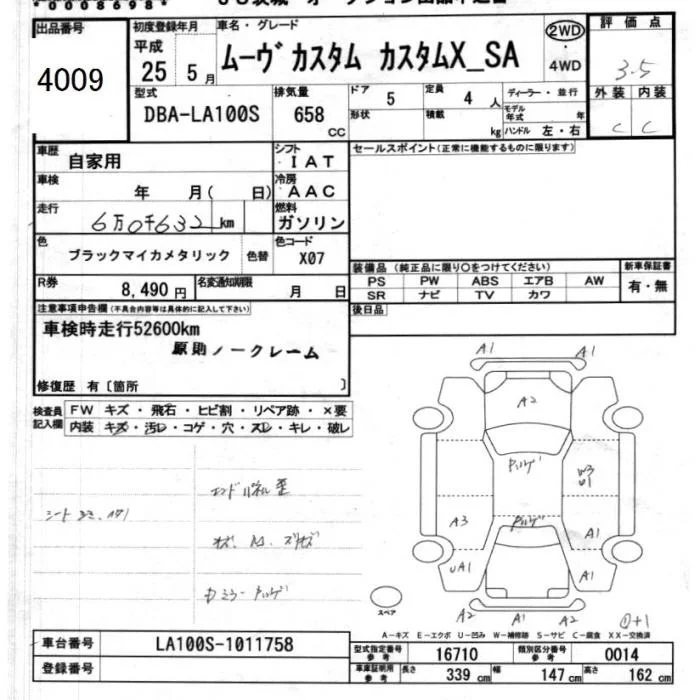 *0008698*
出品番号
4009
初度登録年月
平成
25 5月
車名・グレード
ムーヴ カスタム カスタムX_SA
2WD
・
4WD
評価点
3.5
外装 内装
C C
型式
DBA-LA100S
排気量
658
cc
ドア
5
定員
4 人
形状
積載
kg
ディーラー・並行
モデル年式 年
ハンドル 左・右
車歴
自家用
シフト
IAT
車検
年 月( 日)
冷房
AAC
走行
6万0千632km
燃料
ガソリン
色
ブラックマイカメタリック
色替
色コード
X07
R券
8,490円
名変通知期限
月 日
セールスポイント(正常に機能するものに限ります)
装備品(純正品に限り〇をつけてください)
PS PW ABS エアB AW
SR ナビ TV カワ
新車保証書
有・無
後日品
注意事項申告欄(不具合内容等は具体的に記入して下さい)
車検時走行52600km
原則ノークレーム
修復歴 有〔箇所 〕
検査員記入欄
FW キズ・飛石・ヒビ割・リペア跡・×要
内装 キズ・汚レ・コゲ・穴・スレ・キレ・破レ
A1 A1
A2
W3
A3
A1
UA1
A1
A2 A1 A2
スペア
A−キズ E−エクボ U−凹み W−補修跡 S−サビ C−腐食 XX−交換済
車台番号
LA100S-1011758
登録番号
型式指定番号
参考
16710
類別区分番号
参考
0014
車庫証明用
参考
長さ 339 cm 幅 147 cm 高さ 162 cm